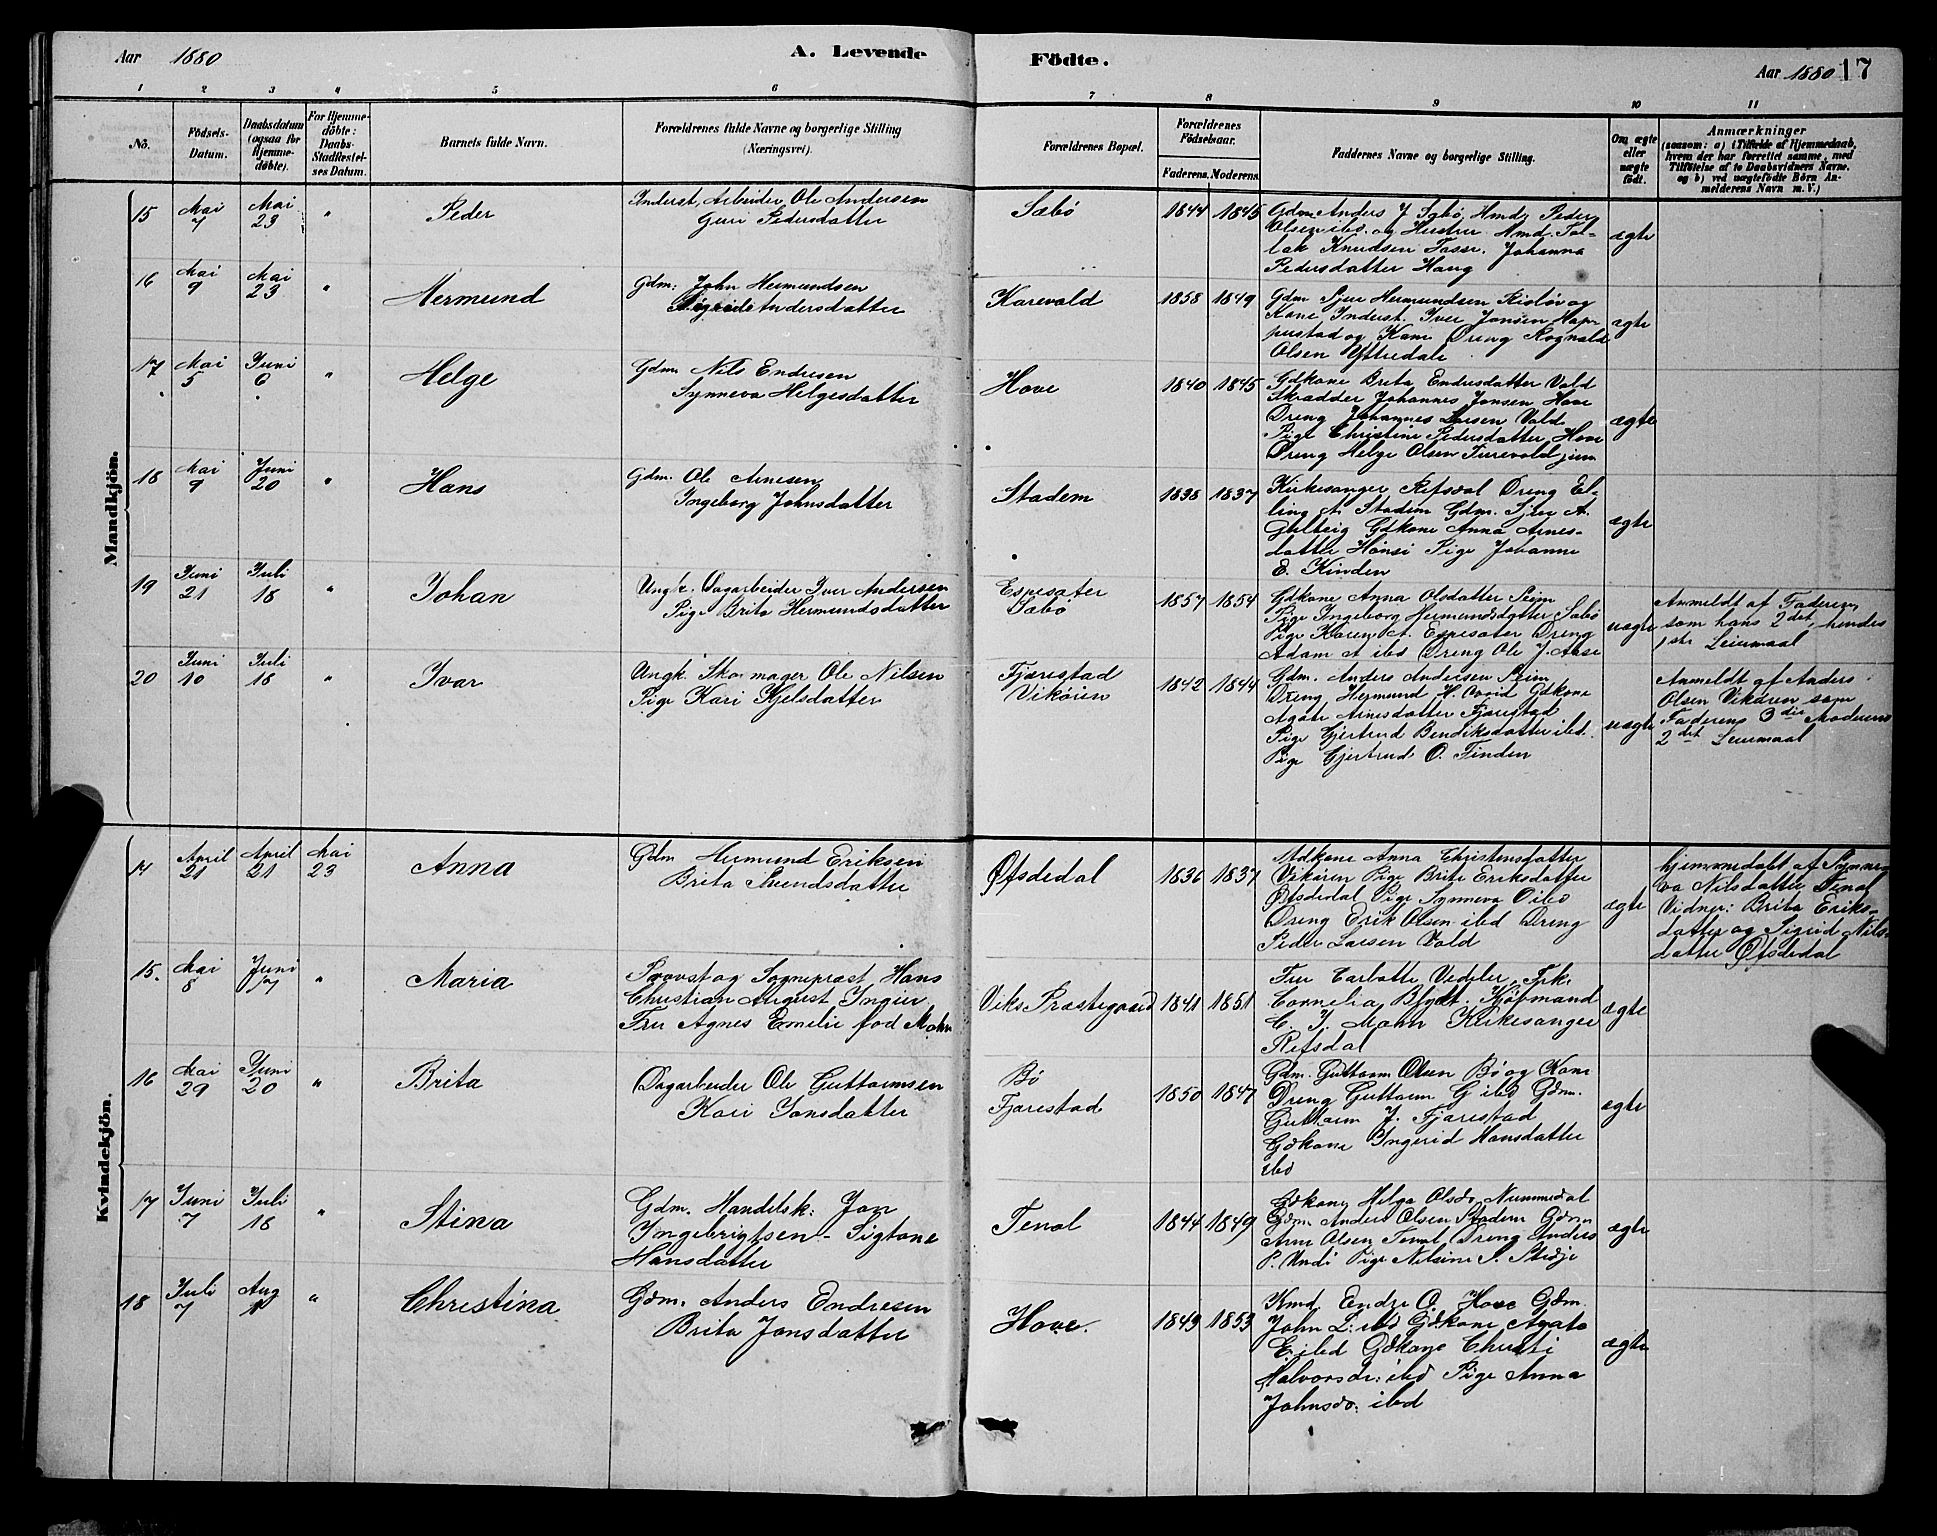 Aar 1880 A. Levende Födte. Aar 1880 17
1 2 3 4 5 6 7 8 9 10 11
No. Födsels-Datum. Daabsdatum (ogsaa for Hjemmedöbte). For Hjemmedöbte: Daabs-Stadfestelses Datum. Barnets fulde Navn. Forældrenes fulde Navne og borgerlige Stilling (Næringsvei). Forældrenes Bopæl. Forældrenes Födselsaar. Faderens. Moderens. Faddernes Navne og borgerlige Stilling. Om ægte eller uægte födt. Anmærkninger (saasom: a) i Tilfælde af Hjemmedaab, hvem der har forrettet samme, med Tilföielse af to Daabsvidners Navne. og b) ved uægtefödte Börn Anmelderens Navn m. V.)
Mandkjön.
15 Mai 7 Mai 23 " Peder
Inderst, Arbeider Ole Andersen
Guri Pedersdatter
Sæbø 1844 1845
Gdm Anders J Sæbø, Hmd. Peder
Olsen ibd. og Hustru Hmd. Tol-
lak Knudsen Tasse. Johanna
Pedersdatter Haug
ægte
16 Mai 9 Mai 23 " Hermund
Gdm: John Hermundsen
Sigrid Andersdatter
Karevold 1858 1849
Gdm Sjur Hermundsen Risløv og
Kone Inderst. Iver Jonsen Hop-
perstad og Kone Dreng Rognald
Olsen Yttredale
ægte
17 Mai 5 Juni 6 " Helge
Gdm Nils Endresen
Synneva Helgesdatter
Hove 1840 1845
Gdkone Brita Endresdatter Vold
Skrædder Johannes Jonsen Hove
Dreng Johannes Larsen Vold
Pige Christine Pedersdatter Hove
Dreng Helge Olsen Turevold jun
ægte
18 Mai 9 Juni 20 " Hans
Gdm. Ole Arnesen
Ingeborg Johnsdatter
Stadem 1838 1837
Kirkesanger Refsdal Dreng El-
ling A. Stadem Gdm. Sjur A.
Gdkone Anna Arnes-
datter Hønsi Pige Johanne
E. Kinden
ægte
19 Juni 21 Juli 18 " Johan
Ungk. Dagarbeider Iver Andersen
Pige Brita Hermundsdatter
Espesæter
Sæbø 1857 1854
Gdkone Anna Olsdatter Seim
Pige Ingeborg Hermundsdatter Sæbø
Pige Karen A. Espesæter Dreng
Adam A ibd Dreng Ole J. Aase
uægte
Anmeldt af Faderen
som hans 2det, hendes
1ste Leiermaal
20 Juni 10 Juli 18 " Ivar
Ungk. Skomager Ole Nilsen
Pige Kari Kjelsdatter
Fjærestad
Vikøren 1842 1844
Gdm. Anders Andersen Seim
Dreng Hermund H. Gdkone
Agate Arnesdatter Fjærestad
Pige Gjertrud Bendiksdatter ibd.
Pige Gjertrud O. Finden
uægte
Anmeldt af Anders
Olsen Vikøren som
Faderens 3die Moderens
2det Leiermaal
Kvindekjön.
14 April 21 April 21 Mai 23 Anna
Gdm Hermund Eriksen
Brita Svendsdatter
Øfsdedal 1836 1837
Mdkone Anna Christensdatter
Vikøren Pige Brite Eriksdatter
Øfsdedal Pige Synneva O ibd
Dreng Erik Olsen ibd Dreng
Peder Larsen Vold
ægte
hjemmedøbt af Synne-
va Nilsdatter Tenal
Vidner: Brita Eriks-
datter og Sigrid Nils-
datter Øfsdedal
15. Mai 8 Juni 17 " Maria
Provst og Sognepræst Hans
Christian August Ingier
Fru Agnes Emelie fød Mohn
Viks Præstegaard 1841 1851
Fru Carlotte Vedeler, Frk.
Cornelia Blydt. Kjøbmand
C. J. Mohn Kirkesanger
Refsdal
ægte
16 Mai 29 Juni 20 " Brita
Dagarbeider Ole Guttormsen
Kari Jonsdatter
Bø
Fjærestad 1850 1847
Gdm. Guttorm Olsen Bø og Kone
Dreng Guttorm G ibd Gdm.
Guttorm J. Fjærestad
Gdkone Ingerid Hansdatter
ibd
ægte
17 Juni 7 Juli 18 " Stina
Gdm. Handelsk: Jon
Ingebrigtsen - Sigtone
Hansdatter
Tenal 1844 1849
Gdkone Helga Olsd. Nummedal
Gdm. Anders Olsen Stadem Gdm
Arne Olsen Tenal Dreng Anders
P. Undi Pige Nilsine S. Stedje
ægte
18 Juli 7 Aug 1 " Christina
Gdm. Anders Endresen
Brita Jonsdatter
Hove. 1843 1853
Kmd. Endre O. Hove Gdm.
John L: ibd Gdkone Agate
E. ibd Gdkone Christi
Halvorsd.: ibd Pige Anna
Johnsd. ibd
ægte